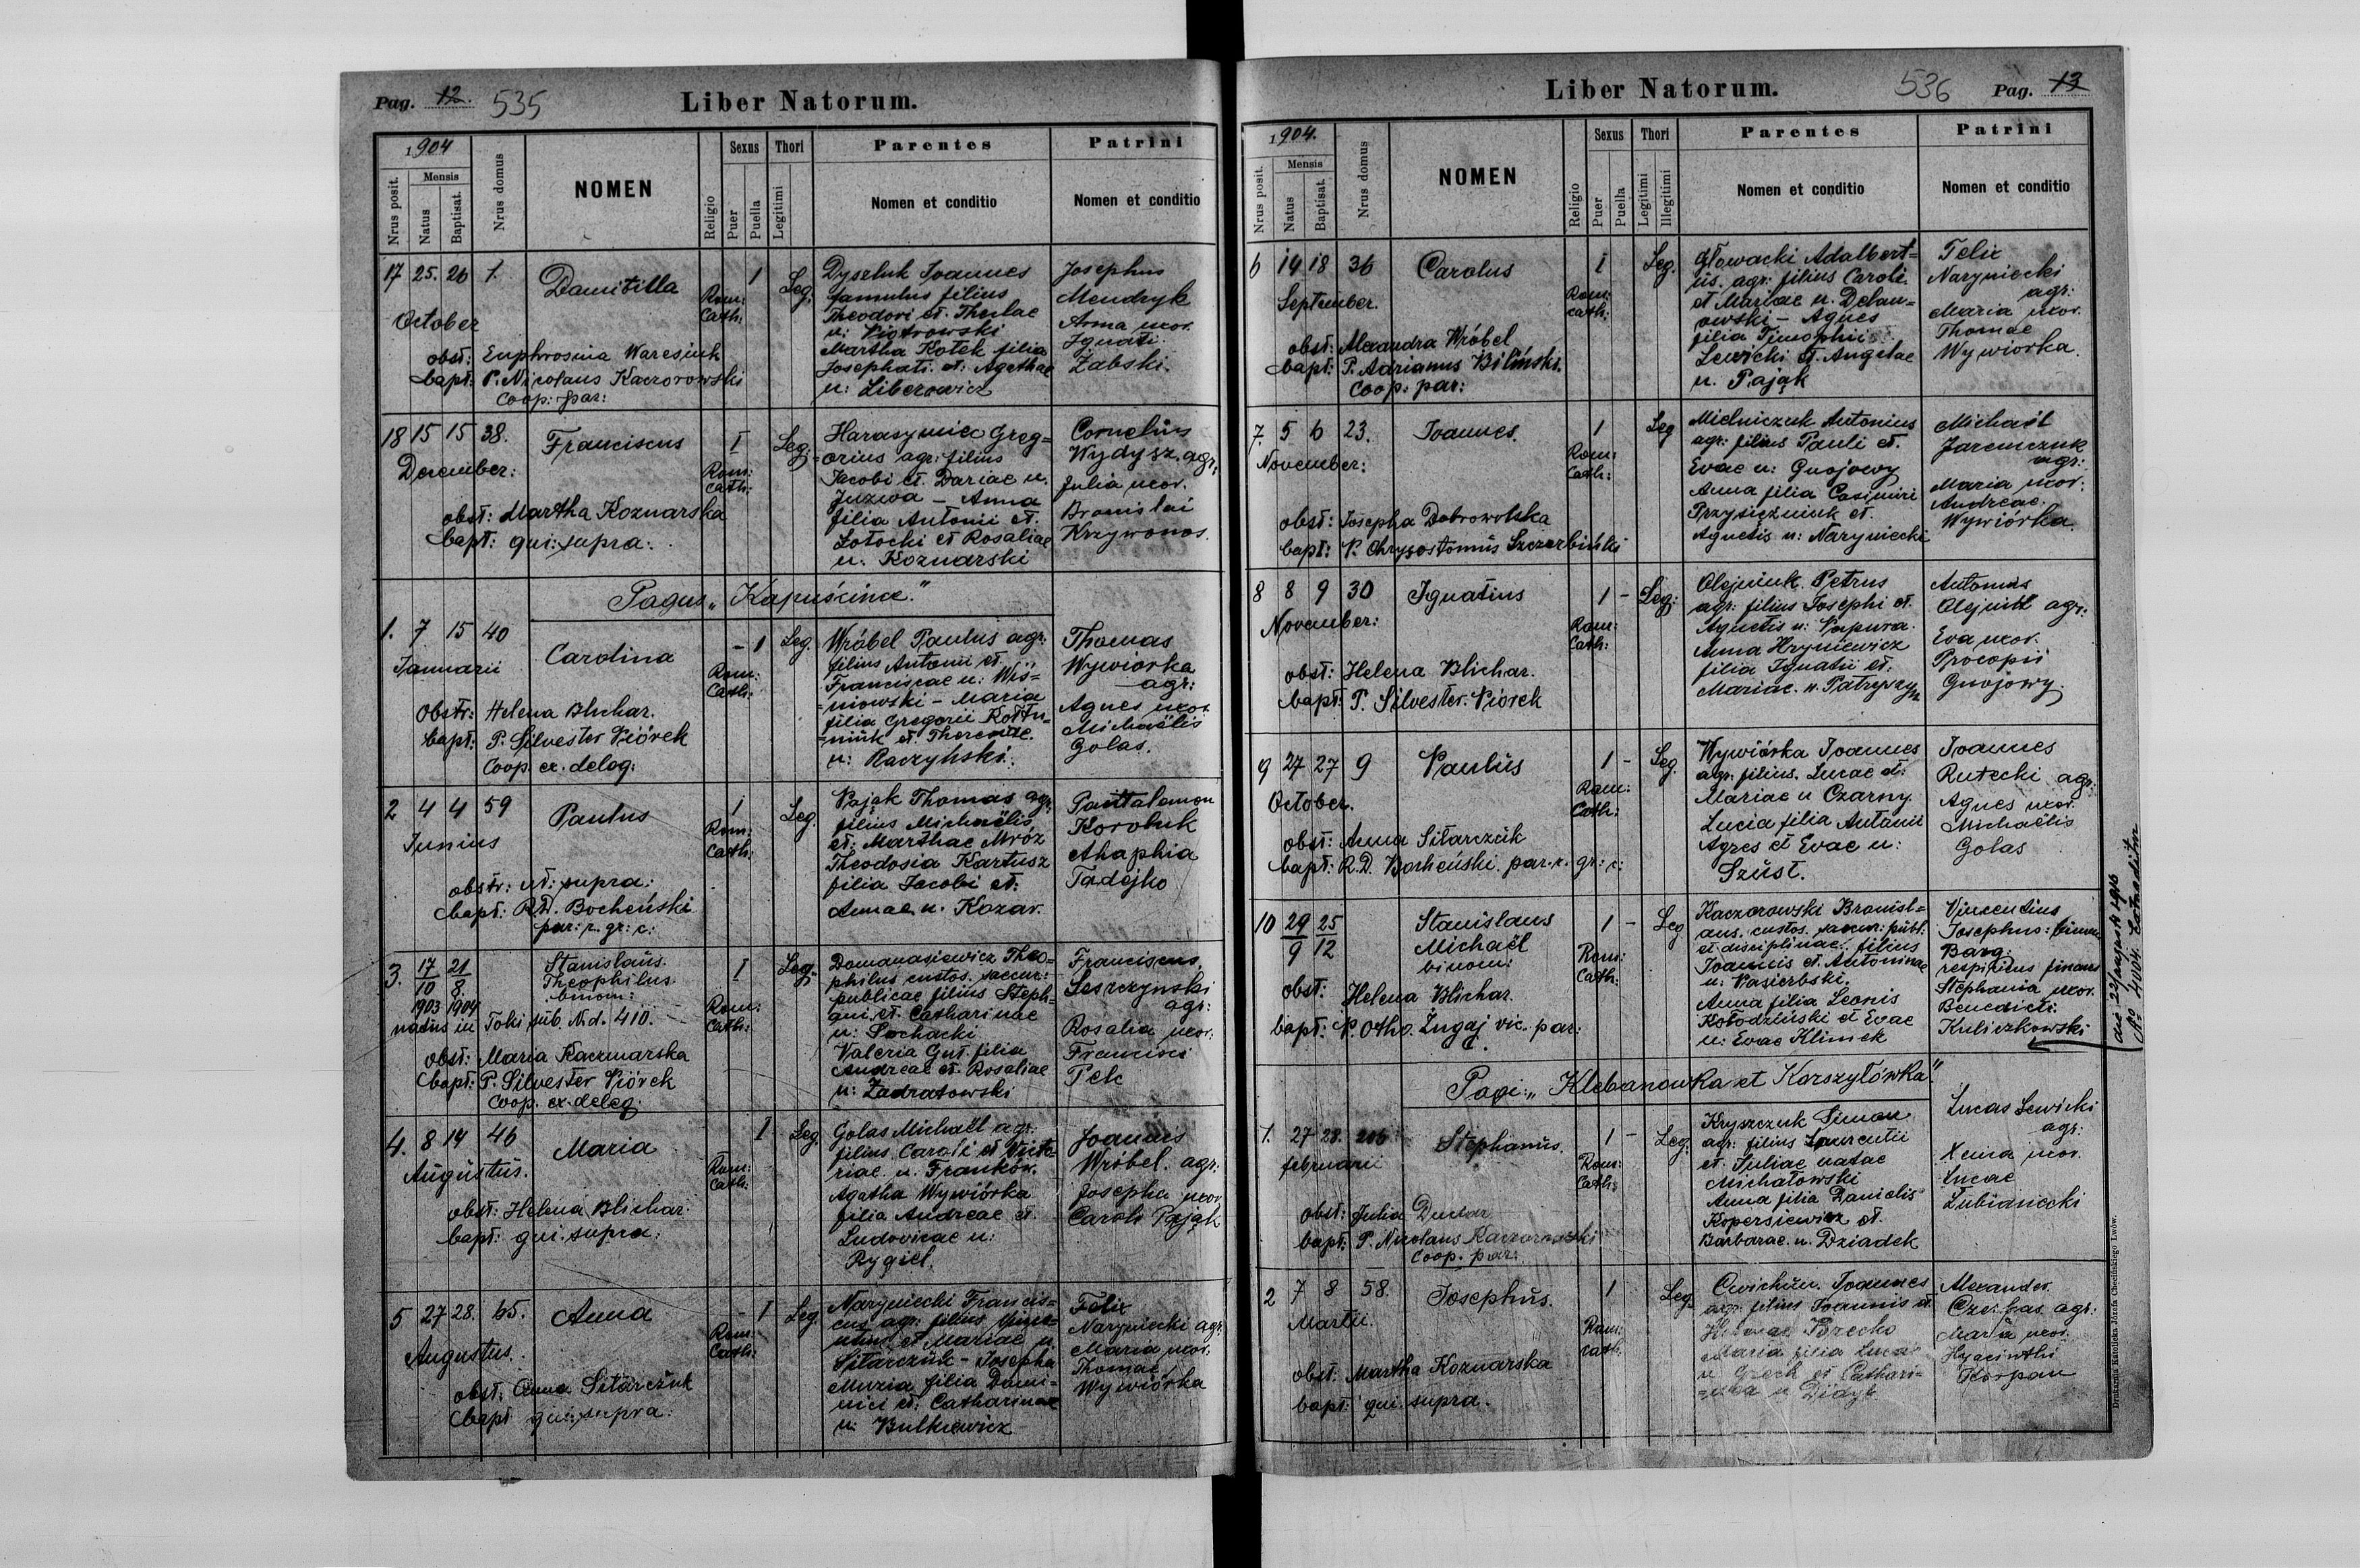 Pag. 12. 535
Liber Natorum.
1904
Nrus posit.
Mensis
Natus
Baptisat.
Nrus domus
NOMEN
Religio
Sexus
Puer
Puella
Thori
Legitimi
Parentes
Nomen et conditio
Patrini
Nomen et conditio
17 25. 26 1.
October
Rom:
Cath:
1
Leg:
Joannes
famulus filius
Theodori et
u: Piotrowski
Martha Kotek filia
Josephati et: Agathae
u: Liberowicz
Josephus
Mendryk
Anna uxor.
Ignati
Żabski.
obst: Euphrosina Waresiuk
bapt: P. Nicolaus Kaczorowski
Coop: par:
18 15 15 38.
December:
Franciscus
Rom:
Cath:
I
Leg:
Harasymie Greg=
=orius agr: filius
Jacobi et Dariae u.
Juzwa – Anna
filia Antonii et.
Łotocki et Rosaliae
u. Koznarski
Cornelius
Wydysz agr:
Julia uxor.
Bronislai
Krzywonos.
obst: Martha Koznarska
bapt: qui supra:
Pagus „Kapuścince."
1. 7 15 40
Januarii
Carolina
Rom:
Cath:
- 1
Leg.
Wróbel Paulus agr.
filius Antonii et
Franciscae u: Wiś=
=niowski – Maria
filia Gregorii Kołtu=
=niuk et.
u: Raczyński.
Thomas
Wywiorka
agr:
Agnes uxor.
Michaëlis
Golas.
Obstr: Helena Blichar.
bapt: P. Silvester Piórek
Coop. ex. deleg:
2 4 4 59
Junius
Paulus
Rom:
Cath:
1
Leg.
Pająk Thomas agr:
filius Michaëlis
et: Marthae Mróz
Theodosia Kartusz
filia Jacobi et:
Annae u. Kozar.
Pantalemon
Koroluk
Ahaphia
Tadejko
obstr: ut: supra:
bapt: R.D. Bocheński
par: r. gr: c:
3. 17/10 21/8
1903 1904
Stanislaus
Theophilus
binom:
natus in Toki sub. N.d. 410.
Rom:
Cath:
I
Leg:
Domanasiewicz Theo=
philus custos. saccur:
publicae filius Steph=
ani et. Catharinae
u: Sochacki
Valeria Gut filia
Andreae et. Rosaliae
u: Zadratowski
Franciscus
Leszczynski
agr:
Rosalia uxor.
Francisci
Pelc
obst: Maria Kaczmarska
bapt: P. Silvester Piórek
Coop. ex. deleg:
4. 8 14 46
Augustus.
Maria
Rom:
Cath:
I
Leg.
Golas Michaël agr:
filius Caroli et Victo=
riae u. Franków.
Agatha Wywiórka
filia Andreae et
Ludovicae u:
Rygiel.
Joannis
Wróbel. agr:
Josepha uxor
Caroli Pająk
obst: Helena Blichar.
bapt: qui supra:
5 27 28. 65.
Augustus.
Anna
Rom:
Cath:
- I
Leg.
Naryniecki Francis=
cus agr: filius
et Mariae u
Sitarczuk – Josepha
Muzia filia Domi=
nici et: Catharinae
u: Bulkiewicz
Felix
Naryniecki agr:
Maria uxor:
Thomae
Wywiórka
obst: Anna Sitarczuk
bapt qui supra:
Liber Natorum.
536 Pag. 13
1904.
Nrus posit.
Mensis
Natus
Baptisat.
Nrus domus
NOMEN
Religio
Sexus
Puer
Puella
Thori
Legitimi
Illegitimi
Parentes
Nomen et conditio
Patrini
Nomen et conditio
6 14 18 36
September.
Carolus
Rom:
Cath:
1
Leg.
Głowacki Adalbert=
us. agr: filius Caroli
et Mariae u.
owski – Agnes
filia Timophii
Lewicki et. Angelae
u. Pająk
Felix
Naryniecki
agr:
Maria uxor.
Thomae
Wywiorka.
obst: Alexandra Wróbel
bapt: P. Adrianus Biliński.
Coop: par:
7. 5 6 23.
November:
Joannes.
Rom:
Cath:
1
Leg
Mielniczuk Antonius
agr: filius Pauli et.
Evae u: Gnojowy
Anna filia Casimiri
Przysiężniuk et.
Agnetis u: Naryniecki
Michaël
Jaremczuk
agr:
Maria uxor:
Andreae.
Wywiórka
obst: Josepha Dobrowolska
bapt: P. Chrysostomus Szczerbiński
8 8 9 30
November:
Ignatius
Rom:
Cath:
1 -
Leg:
Olejniuk Petrus
agr: filius Josephi et.
Agnetis u: Papura.
Anna Hryniewicz
filia Ignatii et.
Mariae. u.
Antonius
Olejnik agr:
Eva uxor.
Procopii
Gnojowy.
obst: Helena Blichar.
bapt: P. Silvester. Piórek
9 27 27 9
October.
Paulus
Rom:
Cath:
1 -
Leg.
Wywiórka Joannes
agr: filius. Lucae et:
Mariae u Czarny.
Lucia filia Antonii
Agres et Evae u:
Szust.
Joannes
Rutecki agr:
Agnes uxor.
Michaëlis
Golas
obst: Anna Sitarczuk
bapt: R.D. Bocheński. par. r. gr: c:
10 29/9 25/12
Stanislaus
Michaël
binom:
Rom:
Cath:
1 -
Leg
Kaczorowski Bronisl=
aus. custos. saccur: publ.
et disciplinae. filius
Joannis et. Antoninae
u. Pasierbski.
Anna filia Leonis
Kołodziński et Evae
u: Evae Klimek
Vincentius
Josephus: binom
Barg:
respicitus finans
Stephania uxor.
Benedicti:
Kuliczkowski
obst: Helena Blichar.
bapt: P. Otho. Żugaj vic. par:
Pagi: „Klebanowka et Karszyłówka".
1. 27 28. 206
februarii
Stephanus.
Rom:
Cath:
1 -
Leg.
Kryszczuk Simon
agr: filius Laurentii
et. Juliae natae
Michałowski
Anna filia Danielis
Kopersiewicz et.
Barbarae. u. Dziadek
Lucas Lewicki
agr:
Xenia uxor.
Lucae
Łubianecki
obst: Julia
bapt: P. Nicolaus Kaczorowski
Coop. par:
2 7 8 58.
Martii.
Josephus.
Rom:
Cath:
1
Leg.
Joannes
agr: filius Joannis et
Brecko
Maria filia Lucae
u Greck et Cathari=
Alexander.
agr:
Maria uxor.
Hyacinthi
Korpan
obst: Martha Koznarska
bapt: qui supra.
Drukarnia Katolicka Józefa Chęcińskiego Lwów.